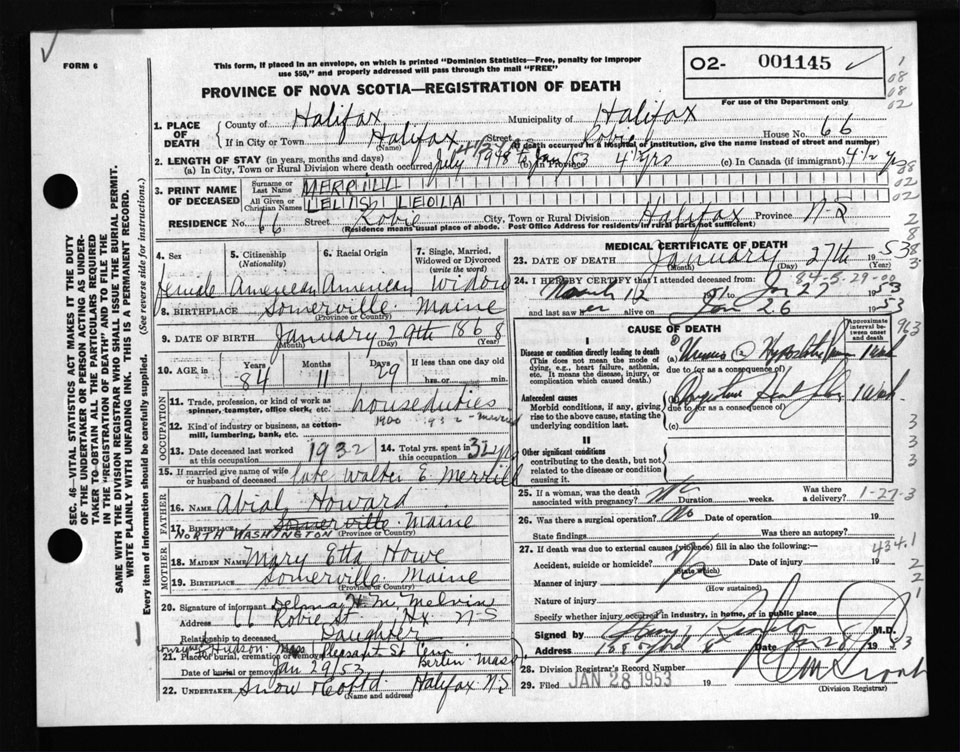 FORM 6
This form, if placed in an envelope, on which is printed "Dominion Statistics—Free, penalty for improper
use $50," and properly addressed will pass through the mail "FREE"
02- 001145
PROVINCE OF NOVA SCOTIA—REGISTRATION OF DEATH
For use of the Department only
1. PLACE OF DEATH
County of Halifax Municipality of Halifax
If in City or Town Halifax Street Robie House No. 66
(Name) (If death occurred in a hospital or institution, give the name instead of street and number)
2. LENGTH OF STAY (in years, months and days)
(a) In City, Town or Rural Division where death occurred July 1948 to Jan 53 (b) in Province 4½ yrs (c) In Canada (if immigrant) 4½ yrs
3. PRINT NAME OF DECEASED
Surname or Last Name MERRILL
All Given or Christian Names LELIS LEOLA
RESIDENCE No. 66 Street Robie City, Town or Rural Division Halifax Province N-S
(Residence means usual place of abode. Post Office Address for residents in rural parts not sufficient)
4. Sex female
5. Citizenship (Nationality) American
6. Racial Origin American
7. Single, Married, Widowed or Divorced (write the word) Widow
8. BIRTHPLACE Somerville Maine
(Province or Country)
9. DATE OF BIRTH January 29th 1868
(Month) (Day) (Year)
10. AGE in Years 84 Months 11 Days 29 If less than one day old
hrs. or min.
OCCUPATION
11. Trade, profession, or kind of work as spinner, teamster, office clerk, etc. houseduties
12. Kind of industry or business, as cotton-mill, lumbering, bank, etc. 1900 932
13. Date deceased last worked at this occupation 1932
14. Total yrs. spent in this occupation 32 yrs
15. If married give name of wife or husband of deceased late Walter E Merrill
FATHER
16. NAME Abial Howard
17. BIRTHPLACE Somerville Maine
NORTH WASHINGTON (Province or Country)
MOTHER
18. MAIDEN NAME Mary Etta Howe
19. BIRTHPLACE Somerville Maine
(Province or Country)
20. Signature of informant Delma H. M. Melvin
Address 66 Robie St. Hx N-S
Relationship to deceased Daughter
21. Place of burial, cremation or removal Hudson Mass Pleasant St Cem Berlin Mass
Date of burial or removal Jan 29/53
22. UNDERTAKER Snow & Co Ltd Halifax NS
(Name and address)
MEDICAL CERTIFICATE OF DEATH
23. DATE OF DEATH January 27th 1953
(Month) (Day) (Year)
84-5-29-00
24. I HEREBY CERTIFY that I attended deceased from:
March 12 51 to Jan 27 1953
and last saw her alive on Jan 26 1953
CAUSE OF DEATH
Approximate interval between onset and death
I
Disease or condition directly leading to death
(This does not mean the mode of dying, e.g., heart failure, asthenia, etc. It means the disease, injury, or complication which caused death.)
(a) 1 week
due to (or as a consequence of)
Antecedent causes
Morbid conditions, if any, giving rise to the above cause, stating the underlying condition last.
1 week
due to (or as a consequence of)
(c)
II
Other significant conditions
contributing to the death, but not related to the disease or condition causing it.
25. If a woman, was the death associated with pregnancy? No Duration weeks. Was there a delivery? 1-27-3
26. Was there a surgical operation? No Date of operation 19
State findings Was there an autopsy?
27. If death was due to external causes (violence) fill in also the following:—
434.1
Accident, suicide or homicide? Date of injury 19
(State which)
Manner of injury
(How sustained)
Nature of injury
Specify whether injury occurred in industry, in home, or in public place
Signed by M.D.
Address Date Jan 28 1953
28. Division Registrar's Record Number
29. Filed JAN 28 1953 19
(Division Registrar)
SEC. 46—VITAL STATISTICS ACT MAKES IT THE DUTY
OF THE UNDERTAKER OR PERSON ACTING AS UNDER-
TAKER TO OBTAIN ALL THE PARTICULARS REQUIRED
IN THE "REGISTRATION OF DEATH" AND TO FILE THE
SAME WITH THE DIVISION REGISTRAR WHO SHALL ISSUE THE BURIAL PERMIT.
WRITE PLAINLY WITH UNFADING INK. THIS IS A PERMANENT RECORD.
Every item of information should be carefully supplied. (See reverse side for instructions.)